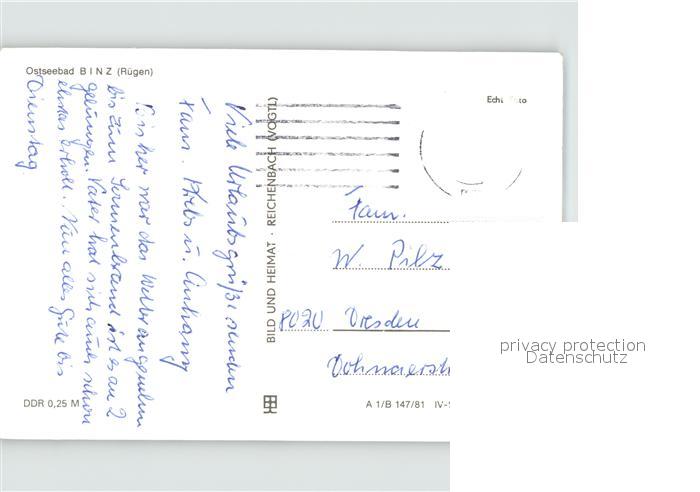 Ostseebad BINZ (Rügen)
Echt Foto
Viele Urlaubsgrüße senden
Fam. Pilz u. Anhang
Bisher war das Wetter angenehm
bis zum Sonnenbrand ist es an 2
gelungen. Vater hat sich auch schon
etwas erholt. Nun alles Gute bis
Dienstag
BILD UND HEIMAT · REICHENBACH (VOGTL)
Fam.
W. Pilz
8020 Dresden
Dohnaerstr
DDR 0,25 M
A 1/B 147/81 IV-
privacy protection
Datenschutz